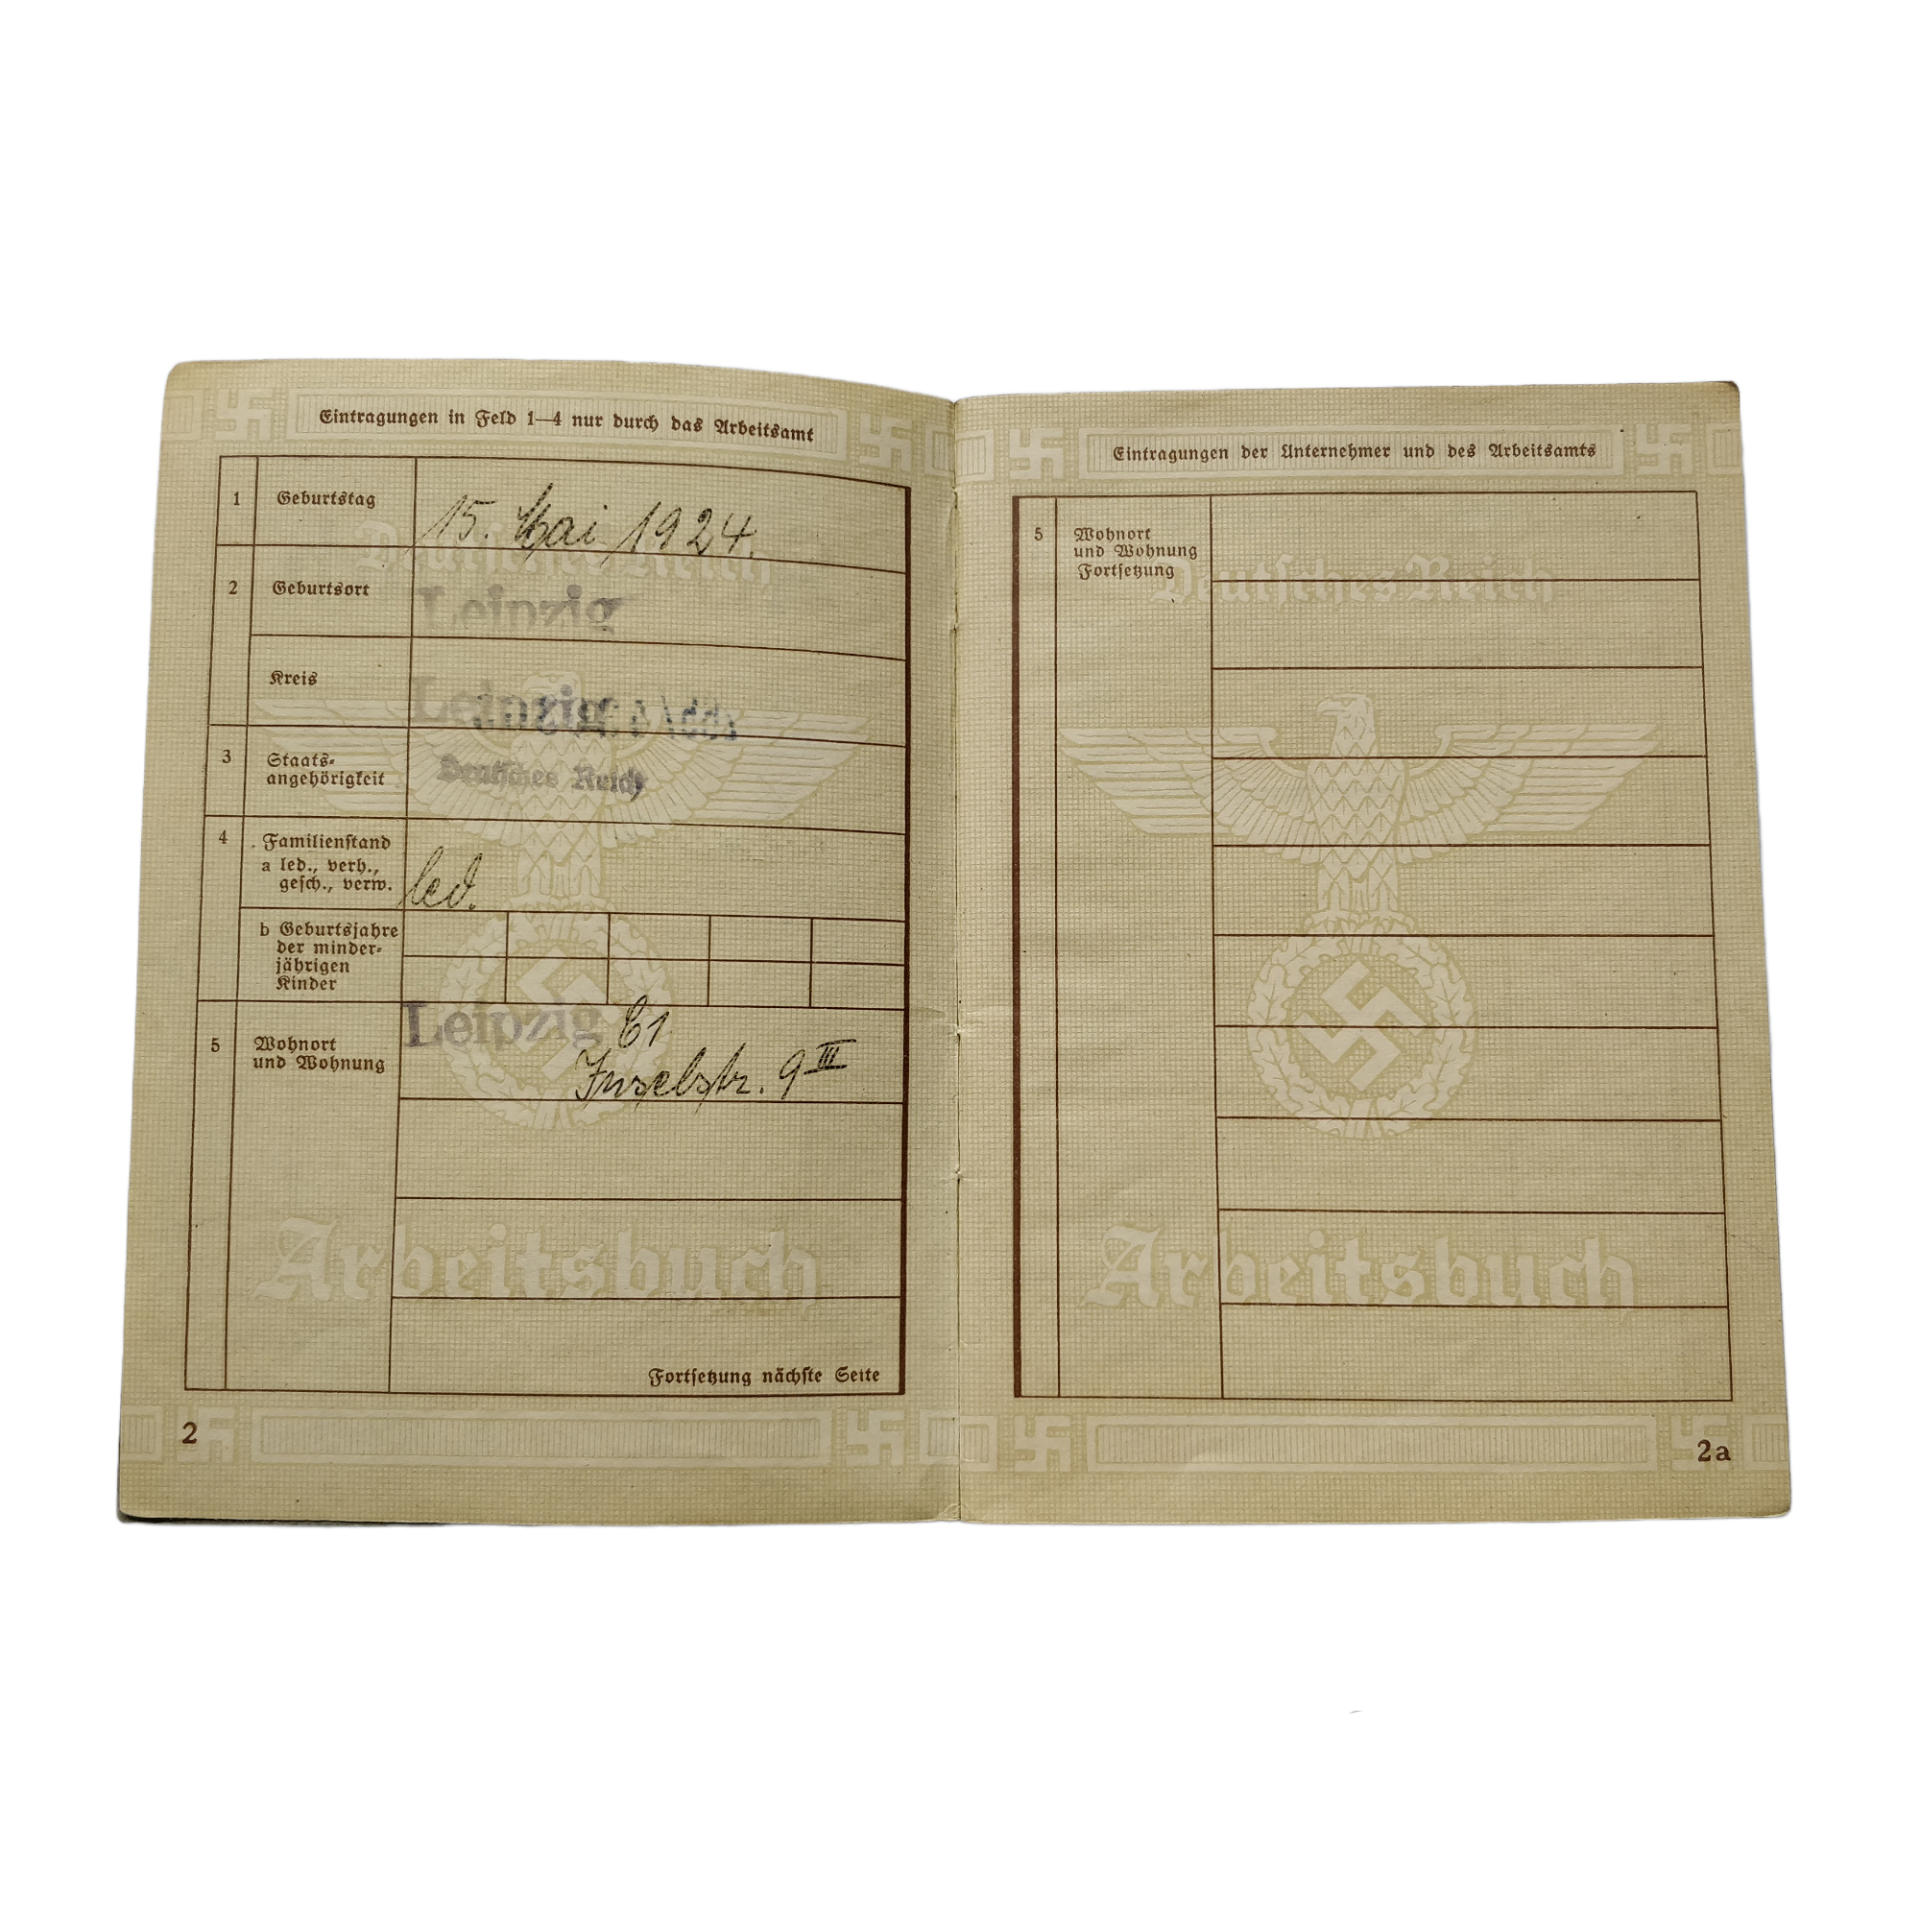 Eintragungen in Feld 1—4 nur durch das Arbeitsamt
1 Geburtstag 15. Mai 1924.
2 Geburtsort Leipzig
Kreis Leipzig
3 Staats-
angehörigkeit Deutsches Reich
4 Familienstand
a led., verh.,
gesch., verw. led.
b Geburtsjahre
der minder-
jährigen
Kinder
5 Wohnort
und Wohnung
Leipzig C1
Inselstr. 9 III
Fortsetzung nächste Seite
2
Deutsches Reich
Arbeitsbuch
Eintragungen der Unternehmer und des Arbeitsamts
5 Wohnort
und Wohnung
Fortsetzung
Deutsches Reich
Arbeitsbuch
2a